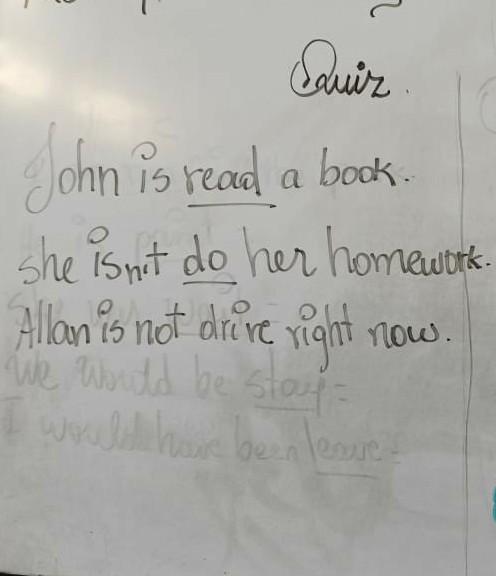 Quiz.
John is read a book.
she isn't do her homework.
Allan is not drive right now.
We would be stay=
I would have been leave=